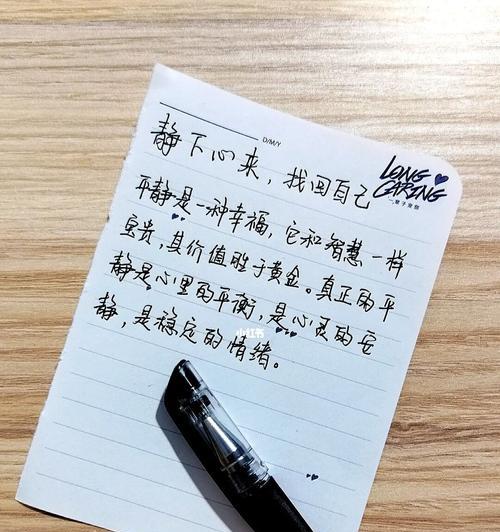 D/M/Y
LONG
CARING
静下心来，找回自己
平静是一种幸福，它和智慧一样
宝贵，其价值胜于黄金。真正的平
静是心里的平衡，是心灵的安
静，是稳定的情绪。
小红书